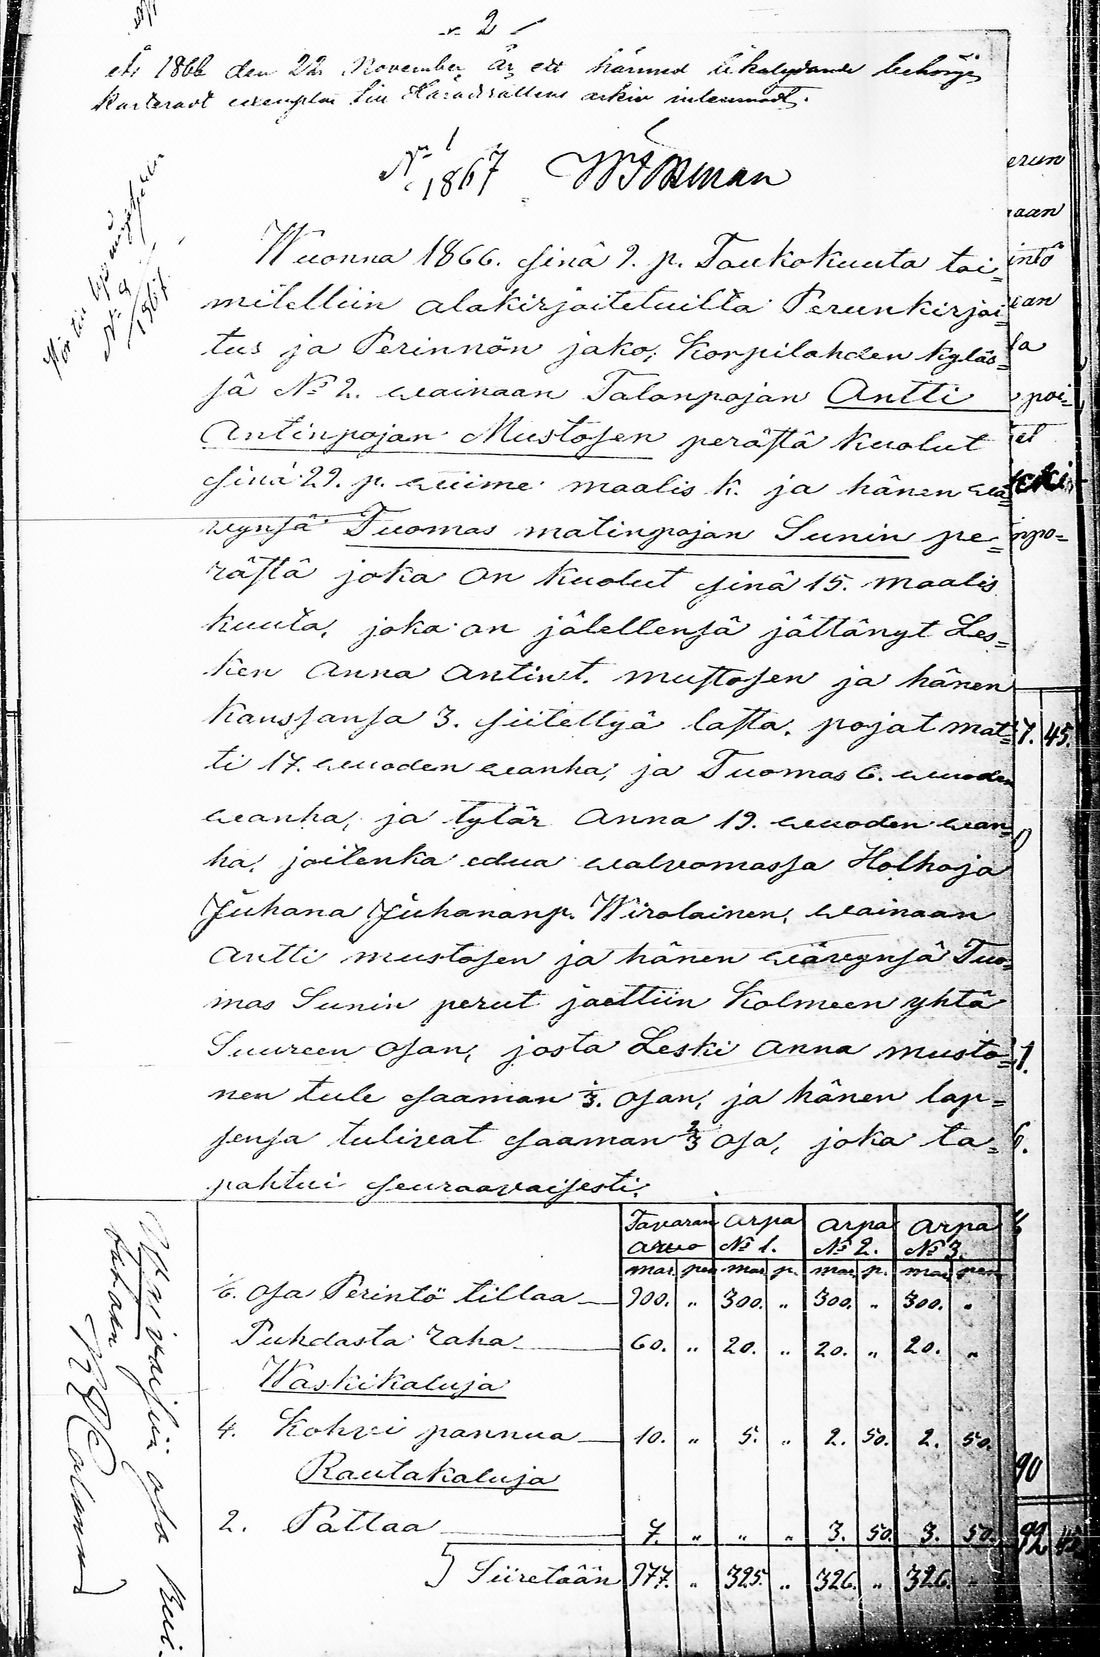 - 2 -
1866 den 22 November är ett härmed likalydande behörigt
karteradt exemplar till Häradsrättens arkiv inlemnadt.
No 1
1867
No 9
1867
Wuonna 1866. sinä 9. p. Toukokuuta toi=
mitelliin alakirjoitetuilta Perunkirjoi=
tus ja Perinnön jako, Korpilahden kyläs=
sä No 2. wainaan Talonpojan Antti
Antinpojan Mustosen perästä kuolut
sinä 29. p. wiime maalis k. ja hänen wä=
wynsä Tuomas matinpojan Sunin pe=
rästä joka on kuolut sinä 15. maalis
kuuta, joka on jälellensä jättänyt Les=
ken Anna Antint. mustosen ja hänen
kanssansa 3. siitettyä lasta. pojat mat=
ti 17. wuoden wanha, ja Tuomas 6. wuoden
wanha, ja tytär Anna 19. wuoden wan=
ha, joilenka edua walvomassa Holhoja
Juhana Juhananp. Wirolainen, wainaan
Antti mustosen ja hänen wäwynsä Tuo=
mas Sunin perut jaettiin Kolmeen yhtä
Suureen osan, josta Leski Anna musto=
nen tule saaman 1/3. osan, ja hänen lap=
sensa tulivat saaman 2/3 osa, joka ta=
pahtui seuraavaisesti.
Tavaran arwo Arpa No 1. Arpa No 2. Arpa No 3.
mar. pen mar. p. mar. p. mar. pen
1/6. osa Perintö tillaa 900. " 300. " 300. " 300. "
Puhdasta raha 60. " 20. " 20. " 20. "
Waskikaluja
4. Kohvi pannua 10. " 5. " 2. 50. 2. 50.
Rautakaluja
2. Pattaa 7. " " " 3. 50. 3. 50.
Siiretään 977. " 325. " 326. " 326. "